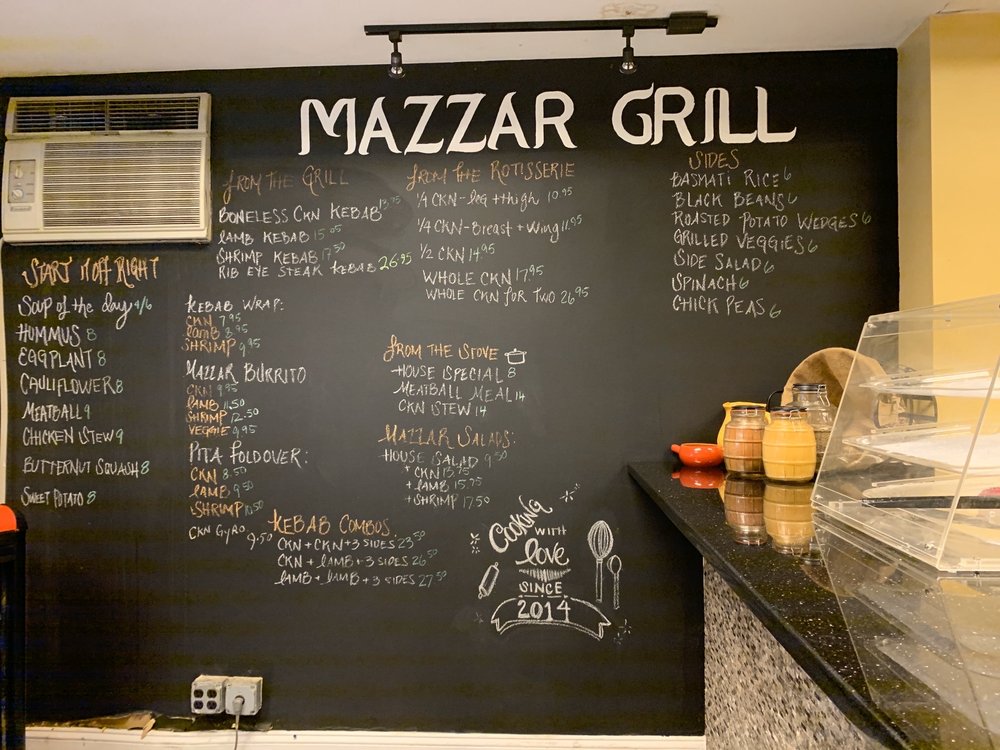 MAZZAR GRILL
START it OFF RiGHT
Soup of the day 4/6
HUMMUS 8
EGGPLANT 8
CAULIFLOWER 8
MEATBALL 9
CHICKEN STEW 9
BUTTERNUT SQUASH 8
SWEET POTATO 8
FROM THE GRILL
BONELESS CKN KEBAB 13.95
LAMB KEBAB 15.95
SHRIMP KEBAB 17.50
RIB EYE STEAK KEBAB 26.95
KEBAB WRAP:
CKN 7.95
LAMB 8.95
SHRIMP 9.95
MAZZAR BURRITO
CKN 9.95
LAMB 11.50
SHRIMP 12.50
VEGGIE 9.95
PITA FOLDOVER:
CKN 8.50
LAMB 9.50
SHRIMP 10.50
CKN GYRO 9.50
KEBAB COMBOS
CKN + CKN + 3 SIDES 23.50
CKN + LAMB + 3 SIDES 26.50
LAMB + LAMB + 3 SIDES 27.50
FROM THE ROTISSERIE
1/4 CKN - leg + thigh 10.95
1/4 CKN - Breast + Wing 11.95
1/2 CKN 14.95
WHOLE CKN 17.95
WHOLE CKN FOR TWO 26.95
FROM THE STOVE
HOUSE SPECIAL 8
MEATBALL MEAL 14
CKN STEW 14
MAZZAR SALADS:
HOUSE SALAD 9.50
+ CKN 15.75
+ LAMB 15.75
+ SHRIMP 17.50
SIDES
BASMATI RICE 6
BLACK BEANS 6
ROASTED POTATO WEDGES 6
GRILLED VEGGIES 6
SIDE SALAD 6
SPINACH 6
CHICK PEAS 6
COOKING
WITH
love
SINCE
2014